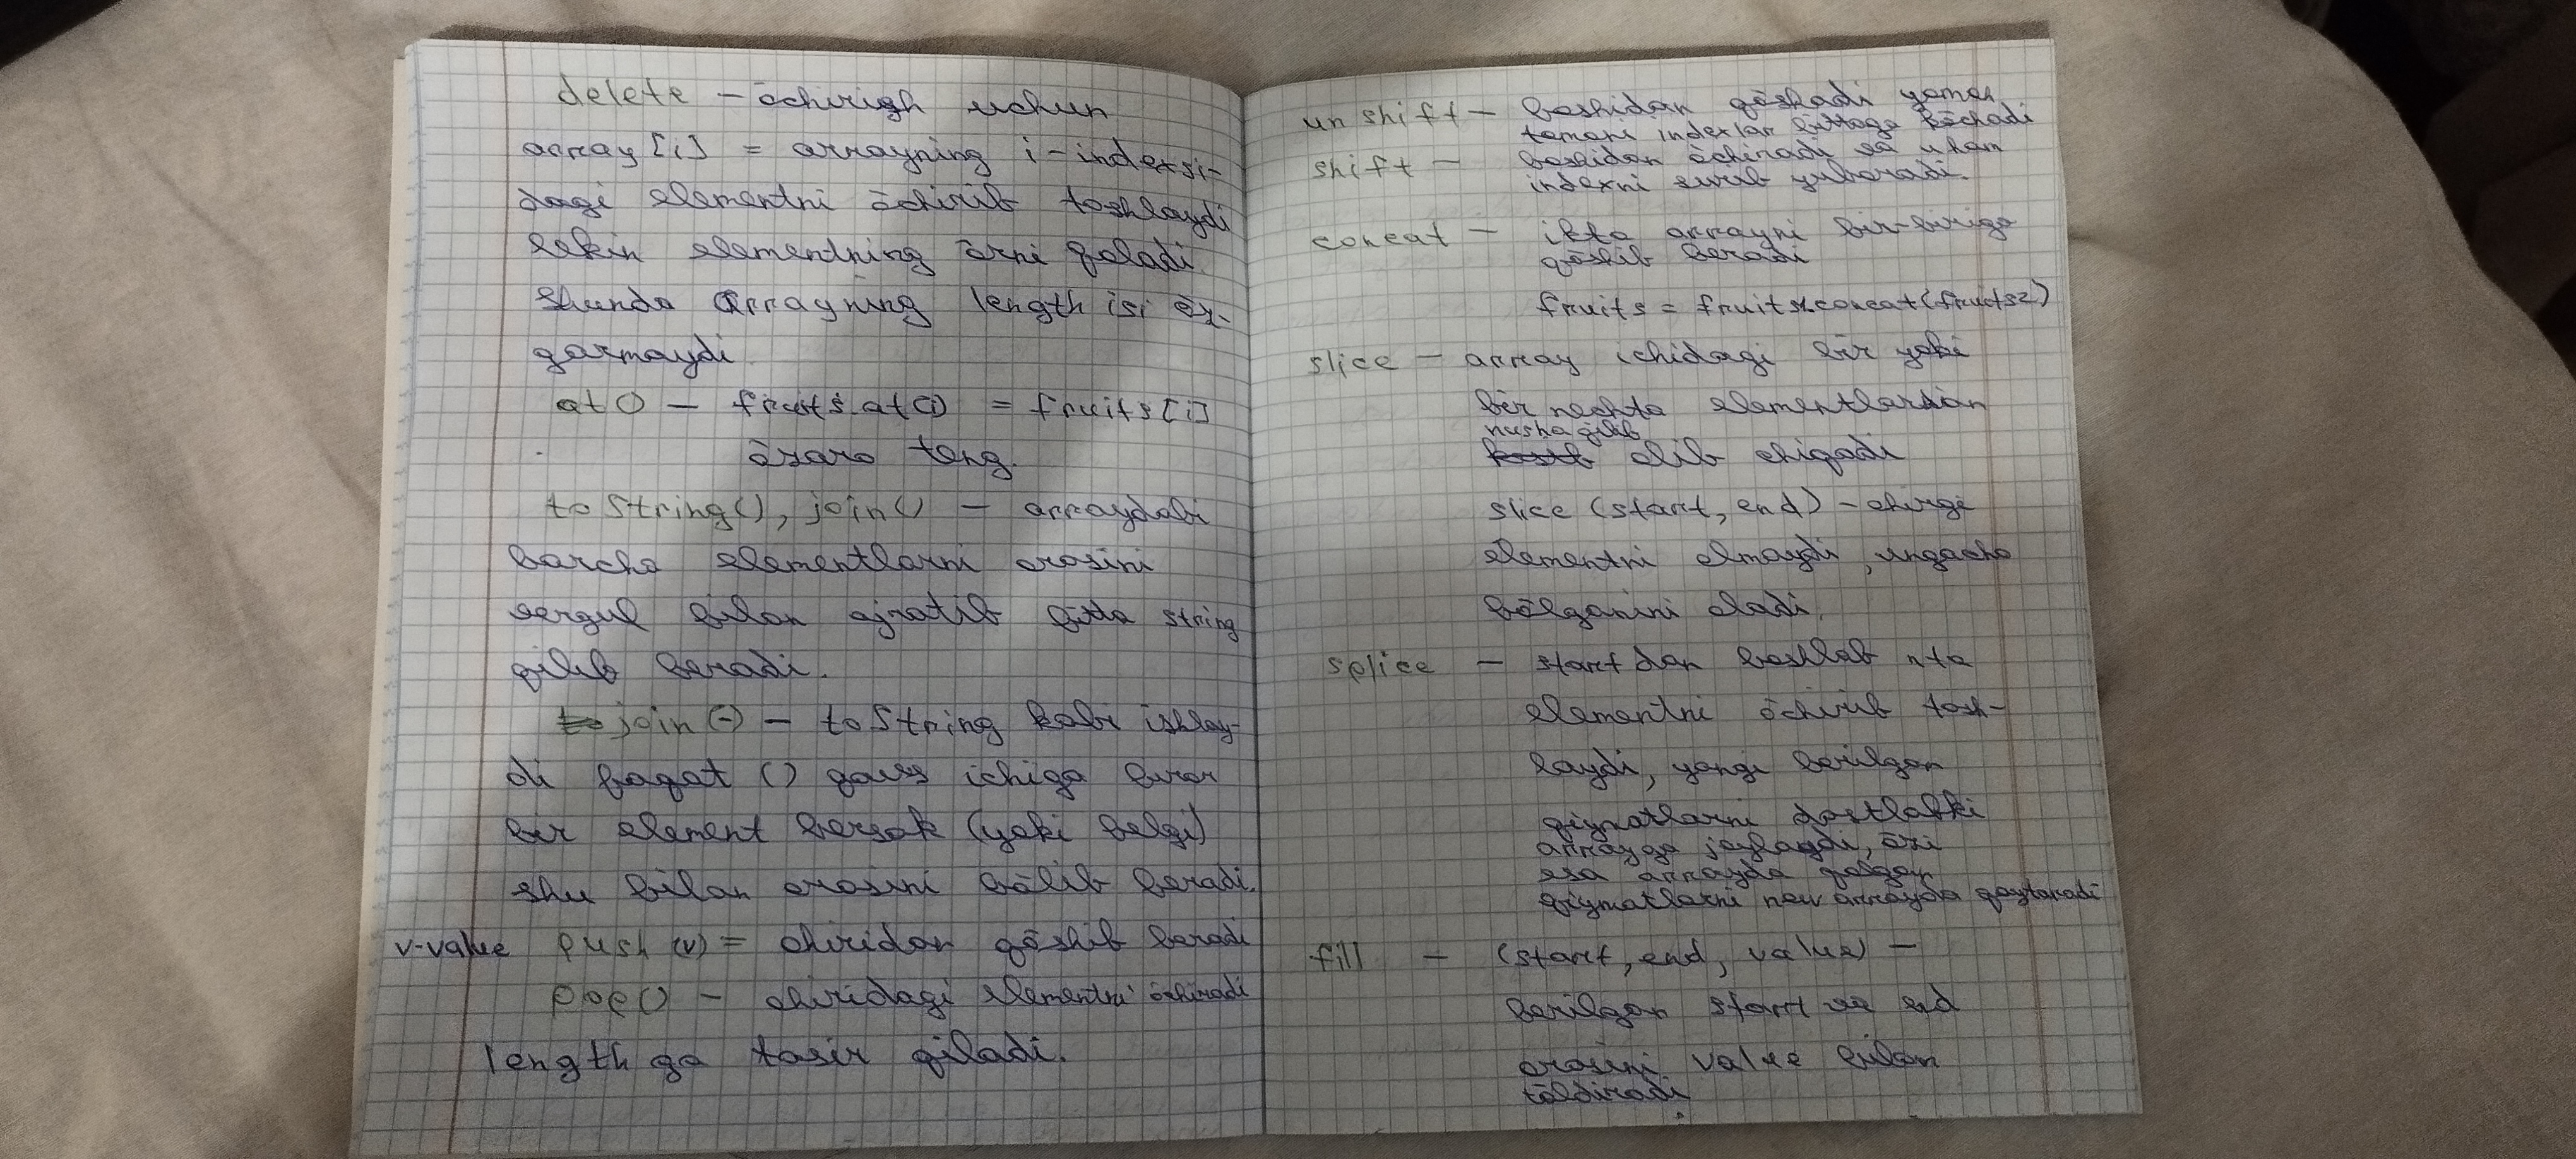 delete - ōchirigh uchun
array [i] = arrayning i-indexsi-
dagi elementni ōchirib toshlaydi
lekin elementning ōrni qoladi.
Shunda Arrayning length isi ōz-
garmaydi.
at() - fruits.at(i) = fruits[i]
ōzaro teng.
toString(), join() - arraydabi
barcha elementlarni orasini
vergul bilan ajratib bitta string
qilib beradi.
join(-) - toString kabi ishlay-
di faqat () qavs ichiga biror
bir element bersak (yoki belgi)
shu bilan orasini bōlib beradi.
v-value push (v) = ohiridan qōshib beradi
pop() - ohiridagi elementni ōchiradi
length ga tasir qiladi.
un shift - boshidan qōshadi
tomoni indexlar bittaga kōchadi
shift - boshidan ōchiradi va uham
indexni surib yuboradi.
concat - ikta arrayni bir-biriga
qōshib beradi
fruits = fruits.concat(fruits2)
slice - array ichidagi bir yoki
bir nechta elementlardan
nusha qilib
olib chiqadi
slice (start, end) - ohirgi
elementni olmaydi, ungacha
bōlganini oladi.
splice - start dan boshlab nta
elementni ōchirib tosh-
laydi, yangi berilgan
qiymatlarni dastlabki
arrayga joylaydi, ōzi
esa arrayda qolgan
qiymatlarni new arrayda qaytaradi
fill - (start, end, value) -
berilgan start va end
orasini value bilan
tōldiradi